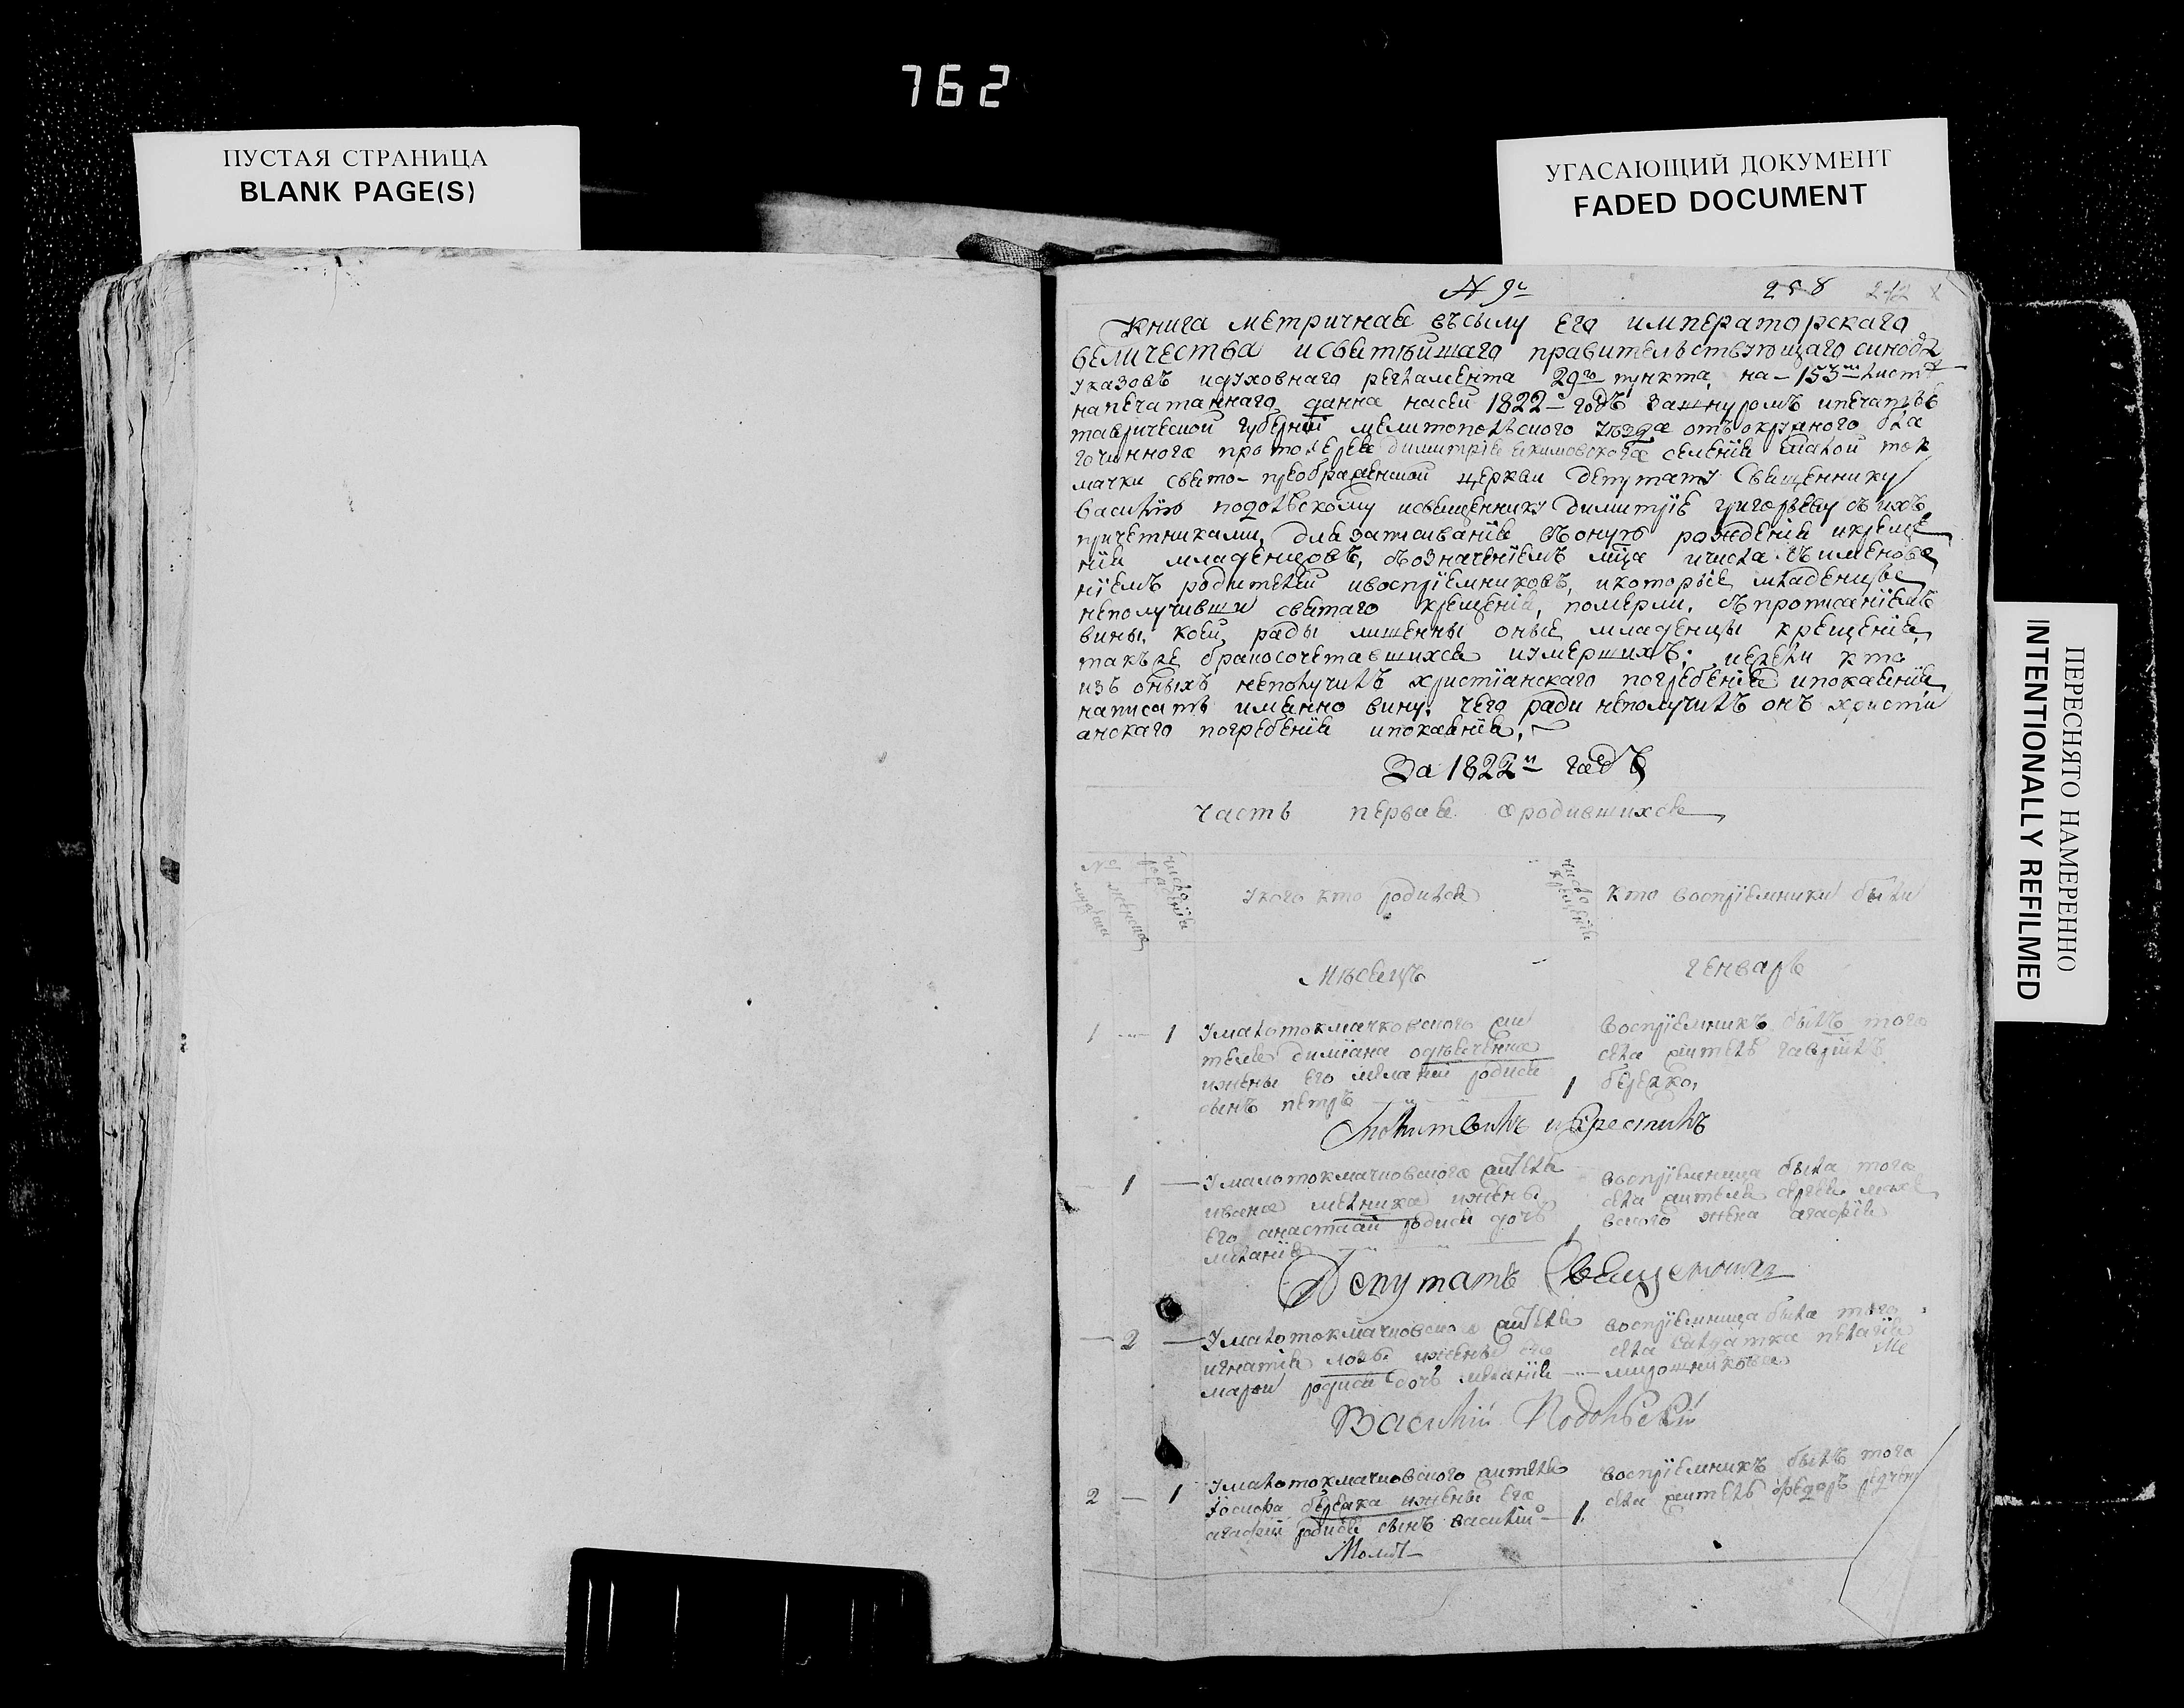 762
ПУСТАЯ СТРАНИЦА
BLANK PAGE(S)
УГАСАЮЩИЙ ДОКУМЕНТ
FADED DOCUMENT
ПЕРЕСНЯТО НАМЕРЕННО
INTENTIONALLY REFILMED
N 9
258 242
Книга метричная въсилу Его императорскаго
величества исвятѣйшаго правительствующаго синода
указовъ идуховнаго регламента 29го пункта, на 153
напечатаннаго данна насей 1822 годъ зашнуромъ ипечатью
таврической губерніи мелитопольского уѣзда отъокружного бла
гочинного протоїерея димитрія селенія малой ток
мачки свято-преображенской церкви депутату Священнику
василїю подольскому исвященнику димитрїю григорьеву съихъ
причетниками, для записыванїя воную рожденїя икреще
нїя младенцовъ, съозначенїемъ мца ичисла съименова
нїемъ родителей ивоспрїемниковъ, икоторые младенцы
неполучивши святаго крещенія, померли, съпрописанїемъ
вины, коей ради лишенны оные младенцы крещенїя,
такъже бракосочетавшихся иумершихъ; иежели кто
изъ оныхъ неполучилъ христїанскаго погребенїя ипокаянїя
написать именно вину, чего ради неполучилъ онъ христи
анскаго погребенїя ипокаянїя,
За 1822 годъ
часть первая ородившихся
№
мужеска
женска
число рожденїя
укого кто родился
число крещенїя
кто воспрїемники были
Мѣсяцъ генварь
1 1 Умалотокмачковского жи
теля димїана
ижены его меланїи родися
сынъ петръ
1
воспрїемникъ былъ того
села житель гаврїилъ
бережко,
Молитвилъ икрестилъ
1 Умалотокмачковского жителя
ивана мелника ижены
его анастасїи родися дочь
меланїя
воспрїемница была того
села жителя сергея
жена агафїя
Депутатъ Священникъ
2 Умалотокмачковского жителя
игнатїя ижены его
марїи родися дочь меланїя
воспрїемница была того
села салдатка пелагїя
мирошникова
Василій Подольскій
2 1 Умалотокмачковского жителя
їосифа бережка ижены его
агафїи родися сынъ василїй 1
воспрїемникъ былъ того
села житель федоръ
Молит